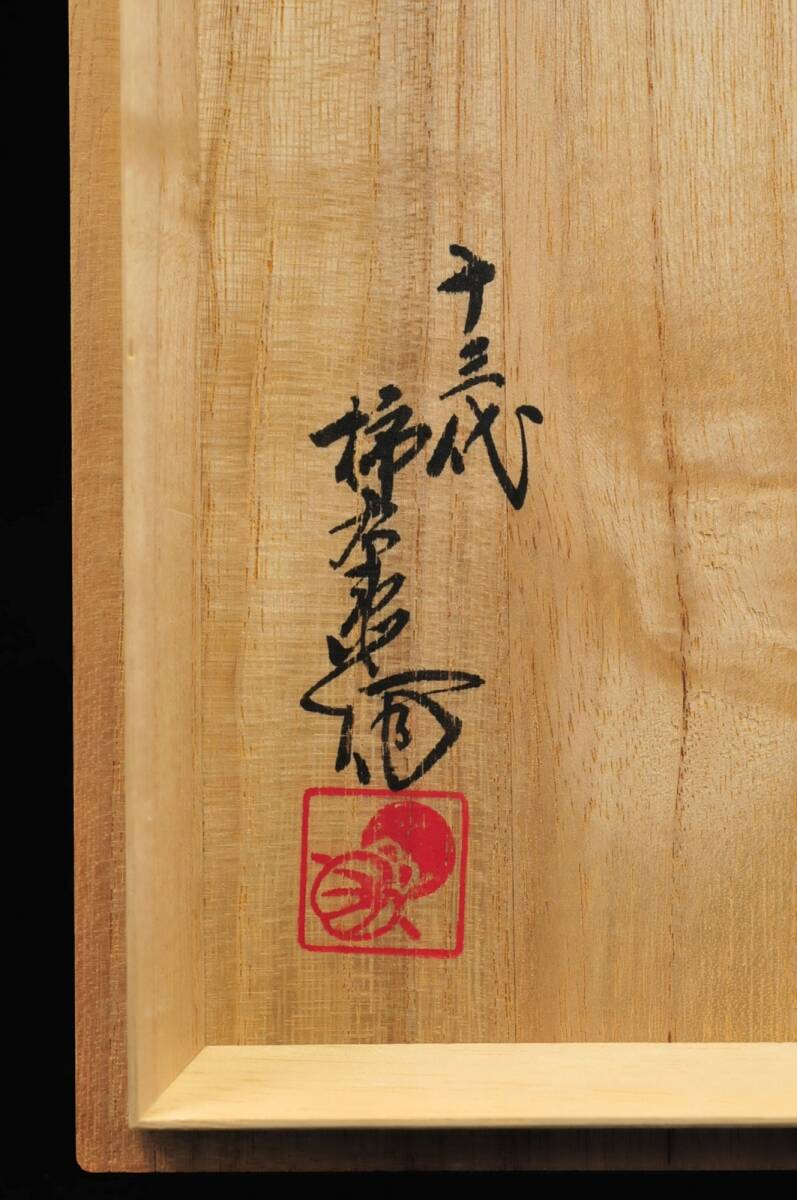 十三代
柿右衛門作